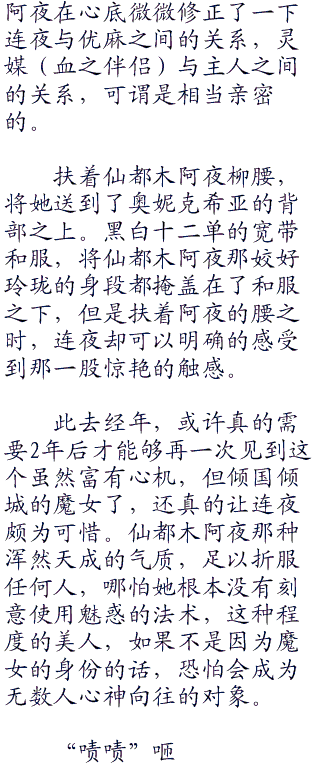 阿夜在心底微微修正了一下
连夜与优麻之间的关系，灵
媒（血之伴侣）与主人之间
的关系，可谓是相当亲密
的。
扶着仙都木阿夜柳腰，
将她送到了奥妮克希亚的背
部之上。黑白十二单的宽带
和服，将仙都木阿夜那姣好
玲珑的身段都掩盖在了和服
之下，但是扶着阿夜的腰之
时，连夜却可以明确的感受
到那一股惊艳的触感。
此去经年，或许真的需
要2年后才能够再一次见到这
个虽然富有心机，但倾国倾
城的魔女了，还真的让连夜
颇为可惜。仙都木阿夜那种
浑然天成的气质，足以折服
任何人，哪怕她根本没有刻
意使用魅惑的法术，这种程
度的美人，如果不是因为魔
女的身份的话，恐怕会成为
无数人心神向往的对象。
“啧啧”咂